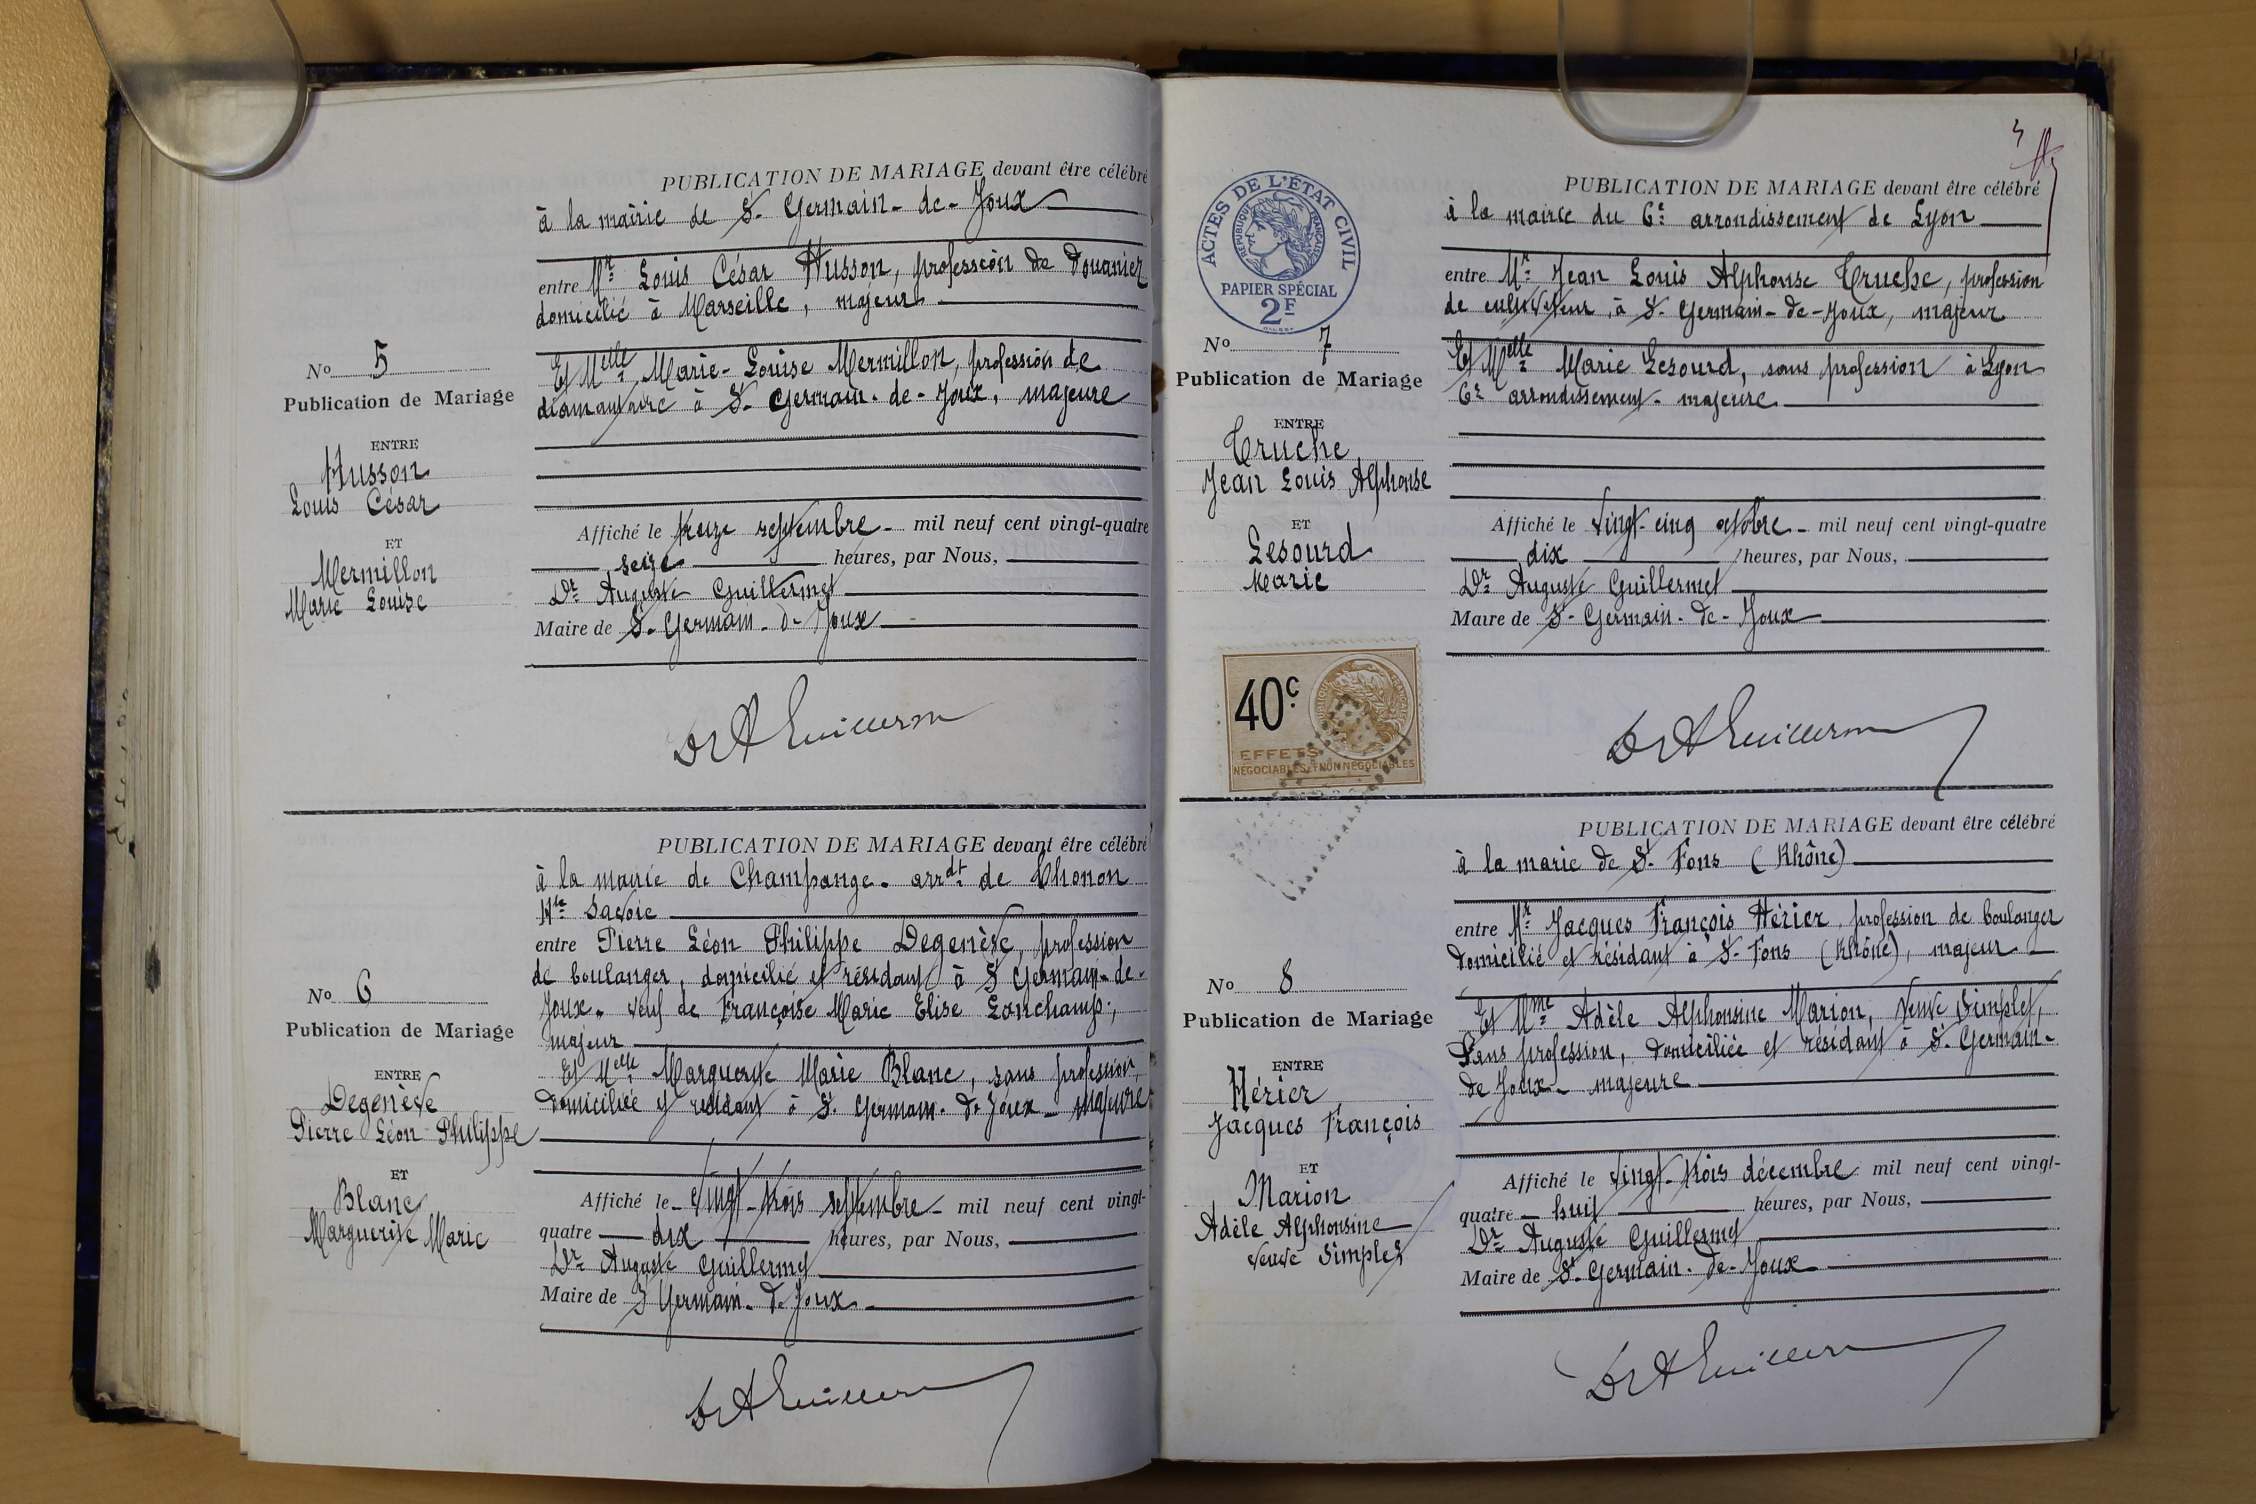 PUBLICATION DE MARIAGE devant être célébré
à la mairie de St Germain-de-Joux
entre Mr Louis César Husson, profession de Douanier
domicilié à Marseille, majeur
Et Melle Marie-Louise Mermillon, profession de
diamantaire à St Germain-de-Joux, majeure
No 5
Publication de Mariage
ENTRE
Husson
Louis César
ET
Mermillon
Marie Louise
Affiché le treize septembre mil neuf cent vingt-quatre
seize heures, par Nous,
Dr Auguste Guillermet
Maire de St Germain-d-Joux
Dr A Guillerm
PUBLICATION DE MARIAGE devant être célébré
à la mairie de Champange. arrdt de Thonon
Hte Savoie
entre Pierre Léon Philippe Degenève, profession
de boulanger, domicilié et résidant à St Germain-de-
Joux. veuf de Françoise Marie Elise Lonchamp;
majeur
Et Melle Marguerite Marie Blanc, sans profession,
domiciliée et résidant à St Germain-de Joux - majeure
No 6
Publication de Mariage
ENTRE
Degenève
Pierre Léon Philippe
ET
Blanc
Marguerite Marie
Affiché le vingt-trois septembre mil neuf cent vingt-
quatre dix heures, par Nous,
Dr Auguste Guillermet
Maire de St Germain-de Joux
Dr A Guillerm
ACTES DE L'ÉTAT CIVIL
RÉPUBLIQUE FRANÇAISE
PAPIER SPÉCIAL
2F
PUBLICATION DE MARIAGE devant être célébré
à la mairie du 6e arrondissement de Lyon
entre Mr Jean Louis Alphonse Truche, profession
de cultivateur, à St Germain-de-Joux, majeur
Et Melle Marie Lesourd, sans profession à Lyon
6e arrondissement - majeure
No 7
Publication de Mariage
ENTRE
Truche
Jean Louis Alphonse
ET
Lesourd
Marie
Affiché le vingt-cinq octobre mil neuf cent vingt-quatre
dix heures, par Nous,
Dr Auguste Guillermet
Maire de St Germain-de-Joux
40c
EFFETS
NÉGOCIABLES & NON NÉGOCIABLES
Dr A Guillerm
PUBLICATION DE MARIAGE devant être célébré
à la marie de St Fons (Rhône)
entre Mr Jacques François Hérier, profession de boulanger
domicilié et résidant à St Fons (Rhône), majeur
Et Mme Adèle Alphonsine Marion, veuve Simplet,
sans profession, domiciliée et résidant à St Germain-
de Joux - majeure
No 8
Publication de Mariage
ENTRE
Hérier
Jacques François
ET
Marion
Adèle Alphonsine
veuve Simplet
Affiché le vingt-trois décembre mil neuf cent vingt-
quatre huit heures, par Nous,
Dr Auguste Guillermet
Maire de St Germain-de-Joux
Dr A Guillerm